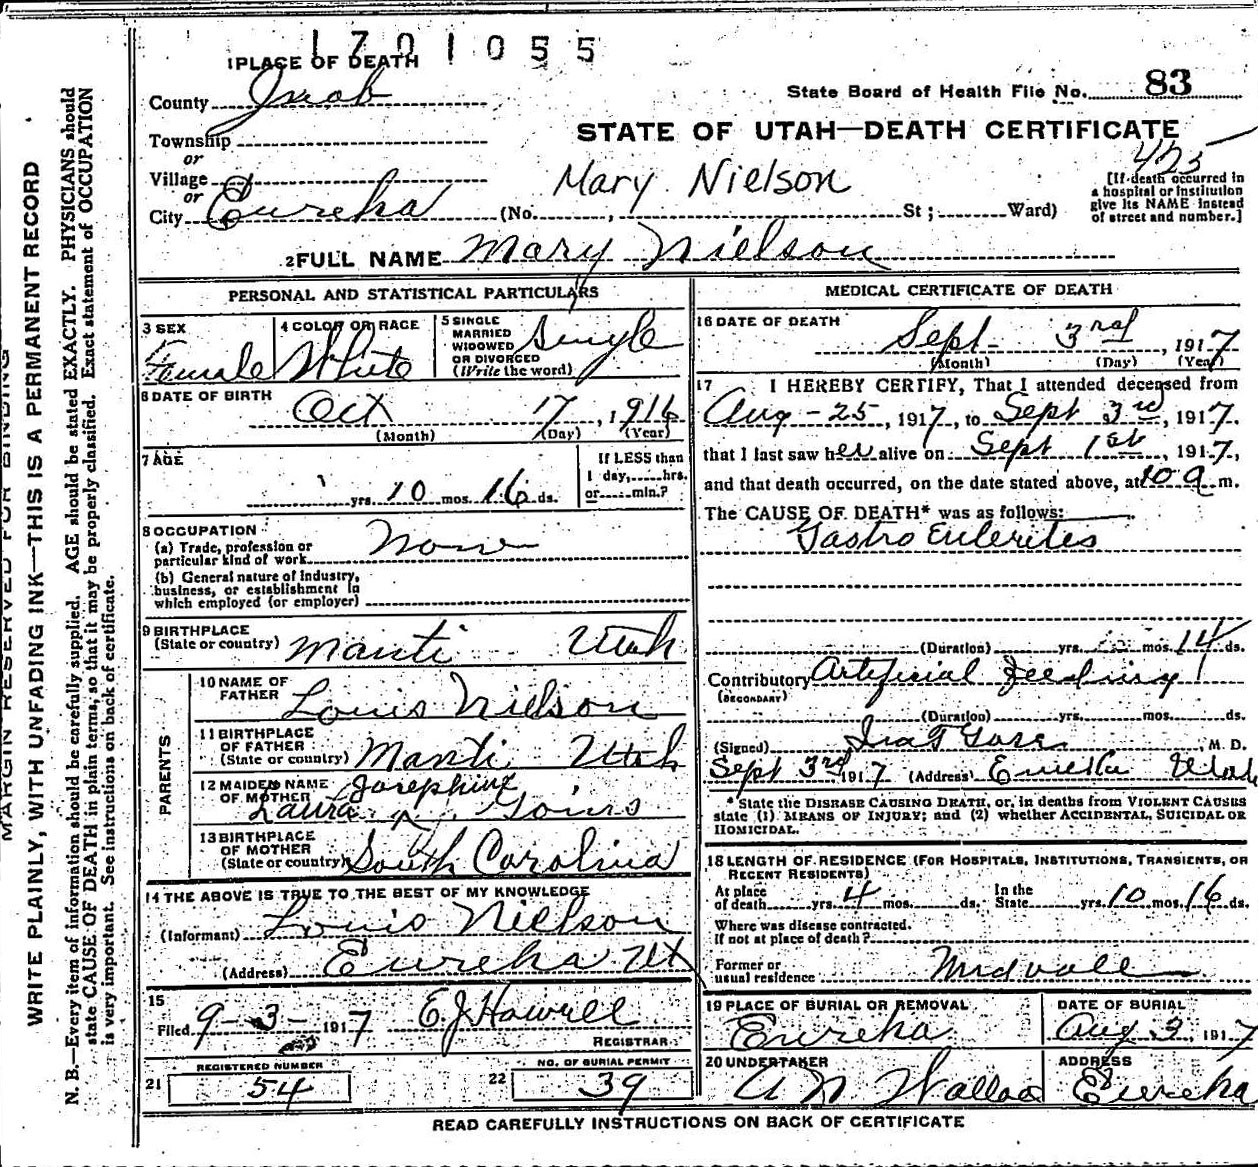 1701055
1 PLACE OF DEATH
County Juab
State Board of Health File No. 83
Township
or
STATE OF UTAH—DEATH CERTIFICATE
425
Village
or
Mary Nielson
[If death occurred in
a hospital or institution
give its NAME instead
of street and number.]
City Eureka (No. , St ; Ward)
2 FULL NAME Mary Nielson
PERSONAL AND STATISTICAL PARTICULARS
3 SEX
Female
4 COLOR OR RACE
White
5 SINGLE
MARRIED
WIDOWED
OR DIVORCED
(Write the word)
Single
6 DATE OF BIRTH
Oct 17, 1916
(Month) (Day) (Year)
7 AGE
yrs. 10 mos. 16 ds.
If LESS than
1 day, hrs.
or min.?
8 OCCUPATION
(a) Trade, profession or
particular kind of work None
(b) General nature of industry,
business, or establishment in
which employed (or employer)
9 BIRTHPLACE
(State or country) Manti Utah
PARENTS
10 NAME OF
FATHER
Louis Nielson
11 BIRTHPLACE
OF FATHER
(State or country) Manti Utah
12 MAIDEN NAME
OF MOTHER
Josephine
Laura
13 BIRTHPLACE
OF MOTHER
(State or country) South Carolina
14 THE ABOVE IS TRUE TO THE BEST OF MY KNOWLEDGE
(Informant) Louis Nielson
(Address) Eureka Ut
15
Filed 9-3- 1917 E.J. Howell
REGISTRAR
REGISTERED NUMBER
21 54
NO. OF BURIAL PERMIT
22 39
MEDICAL CERTIFICATE OF DEATH
16 DATE OF DEATH
Sept 3rd, 1917
(Month) (Day) (Year)
17 I HEREBY CERTIFY, That I attended deceased from
Aug - 25, 1917, to Sept 3rd, 1917.
that I last saw her alive on Sept 1st, 1917,
and that death occurred, on the date stated above, at 10 a m.
The CAUSE OF DEATH* was as follows:
Gastro Enterites
(Duration) yrs. mos. 14 ds.
Contributory Arteficial Feeding
(SECONDARY)
(Duration) yrs. mos. ds.
(Signed) , M. D.
Sept 3rd 1917 (Address) Eureka Utah
* State the DISEASE CAUSING DEATH, or, in deaths from VIOLENT CAUSES
state (1) MEANS OF INJURY; and (2) whether ACCIDENTAL, SUICIDAL OR
HOMICIDAL.
18 LENGTH OF RESIDENCE (FOR HOSPITALS, INSTITUTIONS, TRANSIENTS, OR
RECENT RESIDENTS)
At place
of death yrs. 4 mos. ds.
In the
State yrs. 10 mos. 16 ds.
Where was disease contracted.
if not at place of death?
Former or
usual residence Midvale
19 PLACE OF BURIAL OR REMOVAL
Eureka
DATE OF BURIAL
Aug 3 1917
20 UNDERTAKER
A N Wallace
ADDRESS
Eureka
READ CAREFULLY INSTRUCTIONS ON BACK OF CERTIFICATE
MARGIN RESERVED FOR BINDING
WRITE PLAINLY, WITH UNFADING INK—THIS IS A PERMANENT RECORD
N. B.—Every item of information should be carefully supplied. AGE should be stated EXACTLY. PHYSICIANS should
state CAUSE OF DEATH in plain terms, so that it may be properly classified. Exact statement of OCCUPATION
is very important. See instructions on back of certificate.